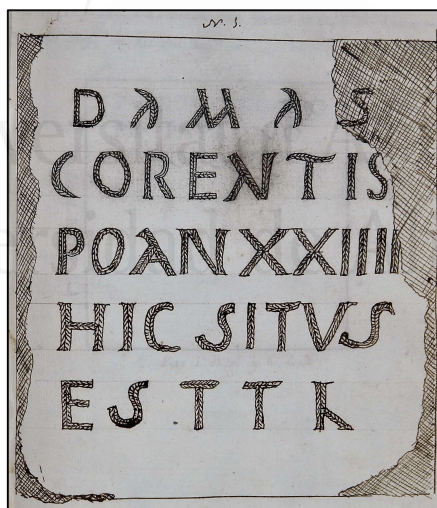 N. 3.
D A M A S
CORENTIS
POANXXIIII
HIC SITVS
E S T T K